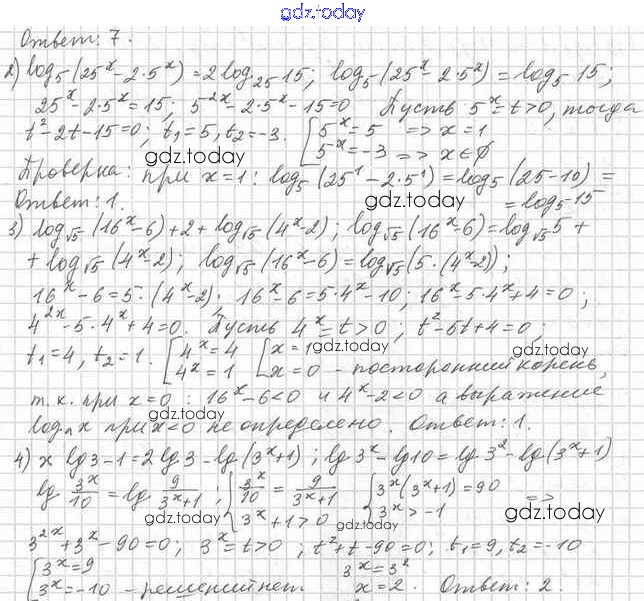 gdz.today
Ответ: 7.
2) log₅(25ˣ-2·5ˣ)=2log₂₅15; log₅(25ˣ-2·5ˣ)=log₅15;
25ˣ-2·5ˣ=15; 5²ˣ-2·5ˣ-15=0 Пусть 5ˣ=t>0, тогда
t²-2t-15=0; t₁=5, t₂=-3. [5ˣ=5 => x=1
5ˣ=-3 => x∈∅
gdz.today
gdz.today
Проверка: при x=1: log₅(25¹-2·5¹)=log₅(25-10)=
=log₅15
Ответ: 1.
3) log√5(16ˣ-6)+2+log√5(4ˣ-2); log√5(16ˣ-6)=log√5 5+
+log√5(4ˣ-2); log√5(16ˣ-6)=log√5(5·(4ˣ-2));
16ˣ-6=5·(4ˣ-2). 16ˣ-6=5·4ˣ-10; 16ˣ-5·4ˣ+4=0;
4²ˣ-5·4ˣ+4=0. Пусть 4ˣ=t>0; t²-5t+4=0;
t₁=4, t₂=1. [4ˣ=4 [x=1
4ˣ=1 x=0 - посторонний корень,
gdz.today
gdz.today
т.к. при x=0: 16ˣ-6<0 и 4ˣ-2<0 а выражение
gdz.today
logₙx при x<0 не определено. Ответ: 1.
4) x lg3-1=2lg3-lg(3ˣ+1); lg3ˣ-lg10=lg3²-lg(3ˣ+1)
lg 3ˣ/10=lg 9/(3ˣ+1); {3ˣ/10=9/(3ˣ+1) {3ˣ(3ˣ+1)=90 =>
3ˣ+1>0 3ˣ>-1
gdz.today
gdz.today
gdz.today
3²ˣ+3ˣ-90=0; 3ˣ=t>0; t²+t-90=0; t₁=9, t₂=-10
[3ˣ=9 3ˣ=3²
3ˣ=-10 - решений нет x=2. Ответ: 2.
gdz.today
gdz.today